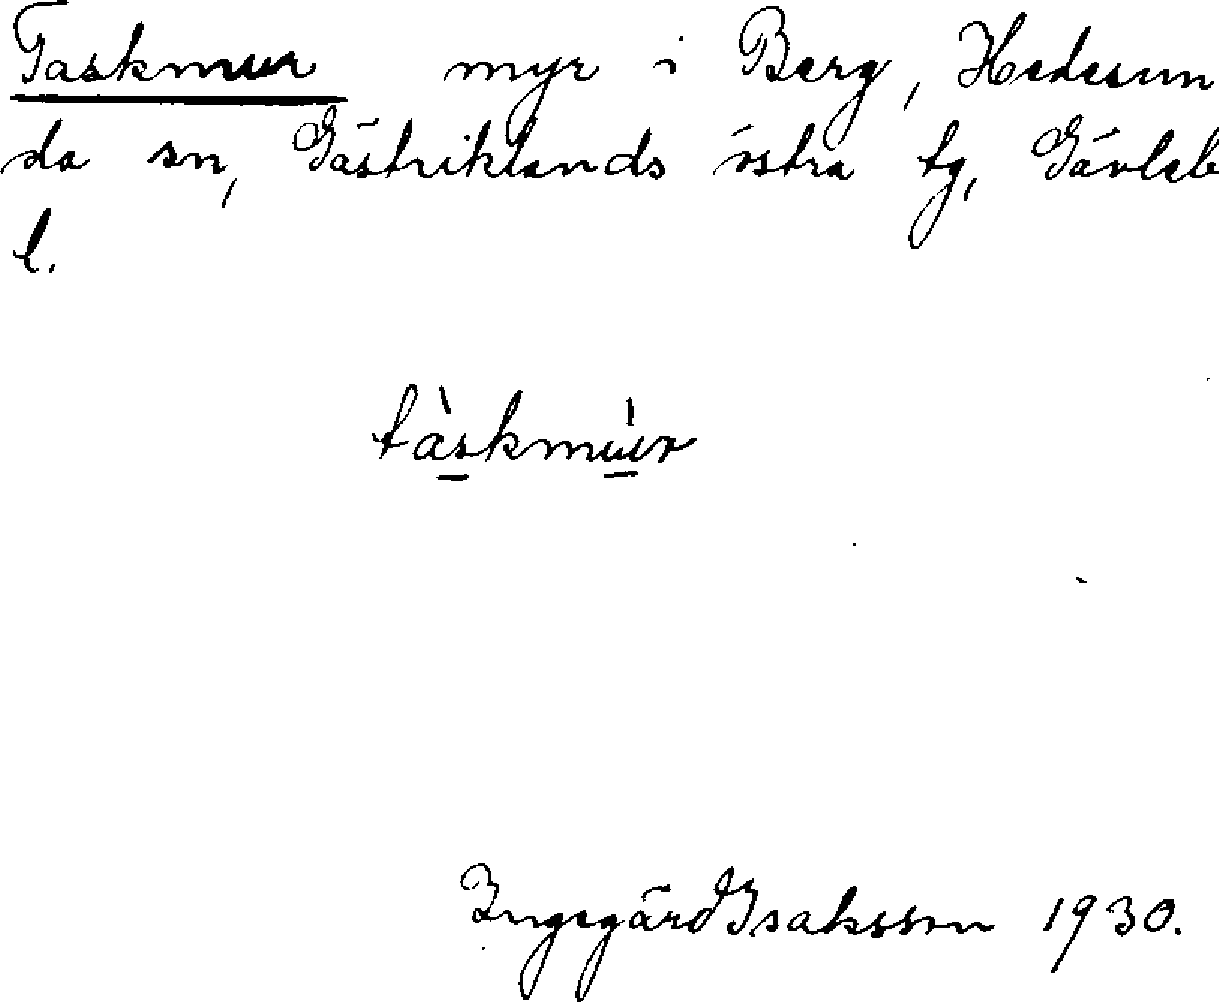 Taskmur myr i Berg, Hedesun
da sn, Gästriklands östra tg, Gävleb
l.
tàskmúr
Ingegärd Isaksson 1930.